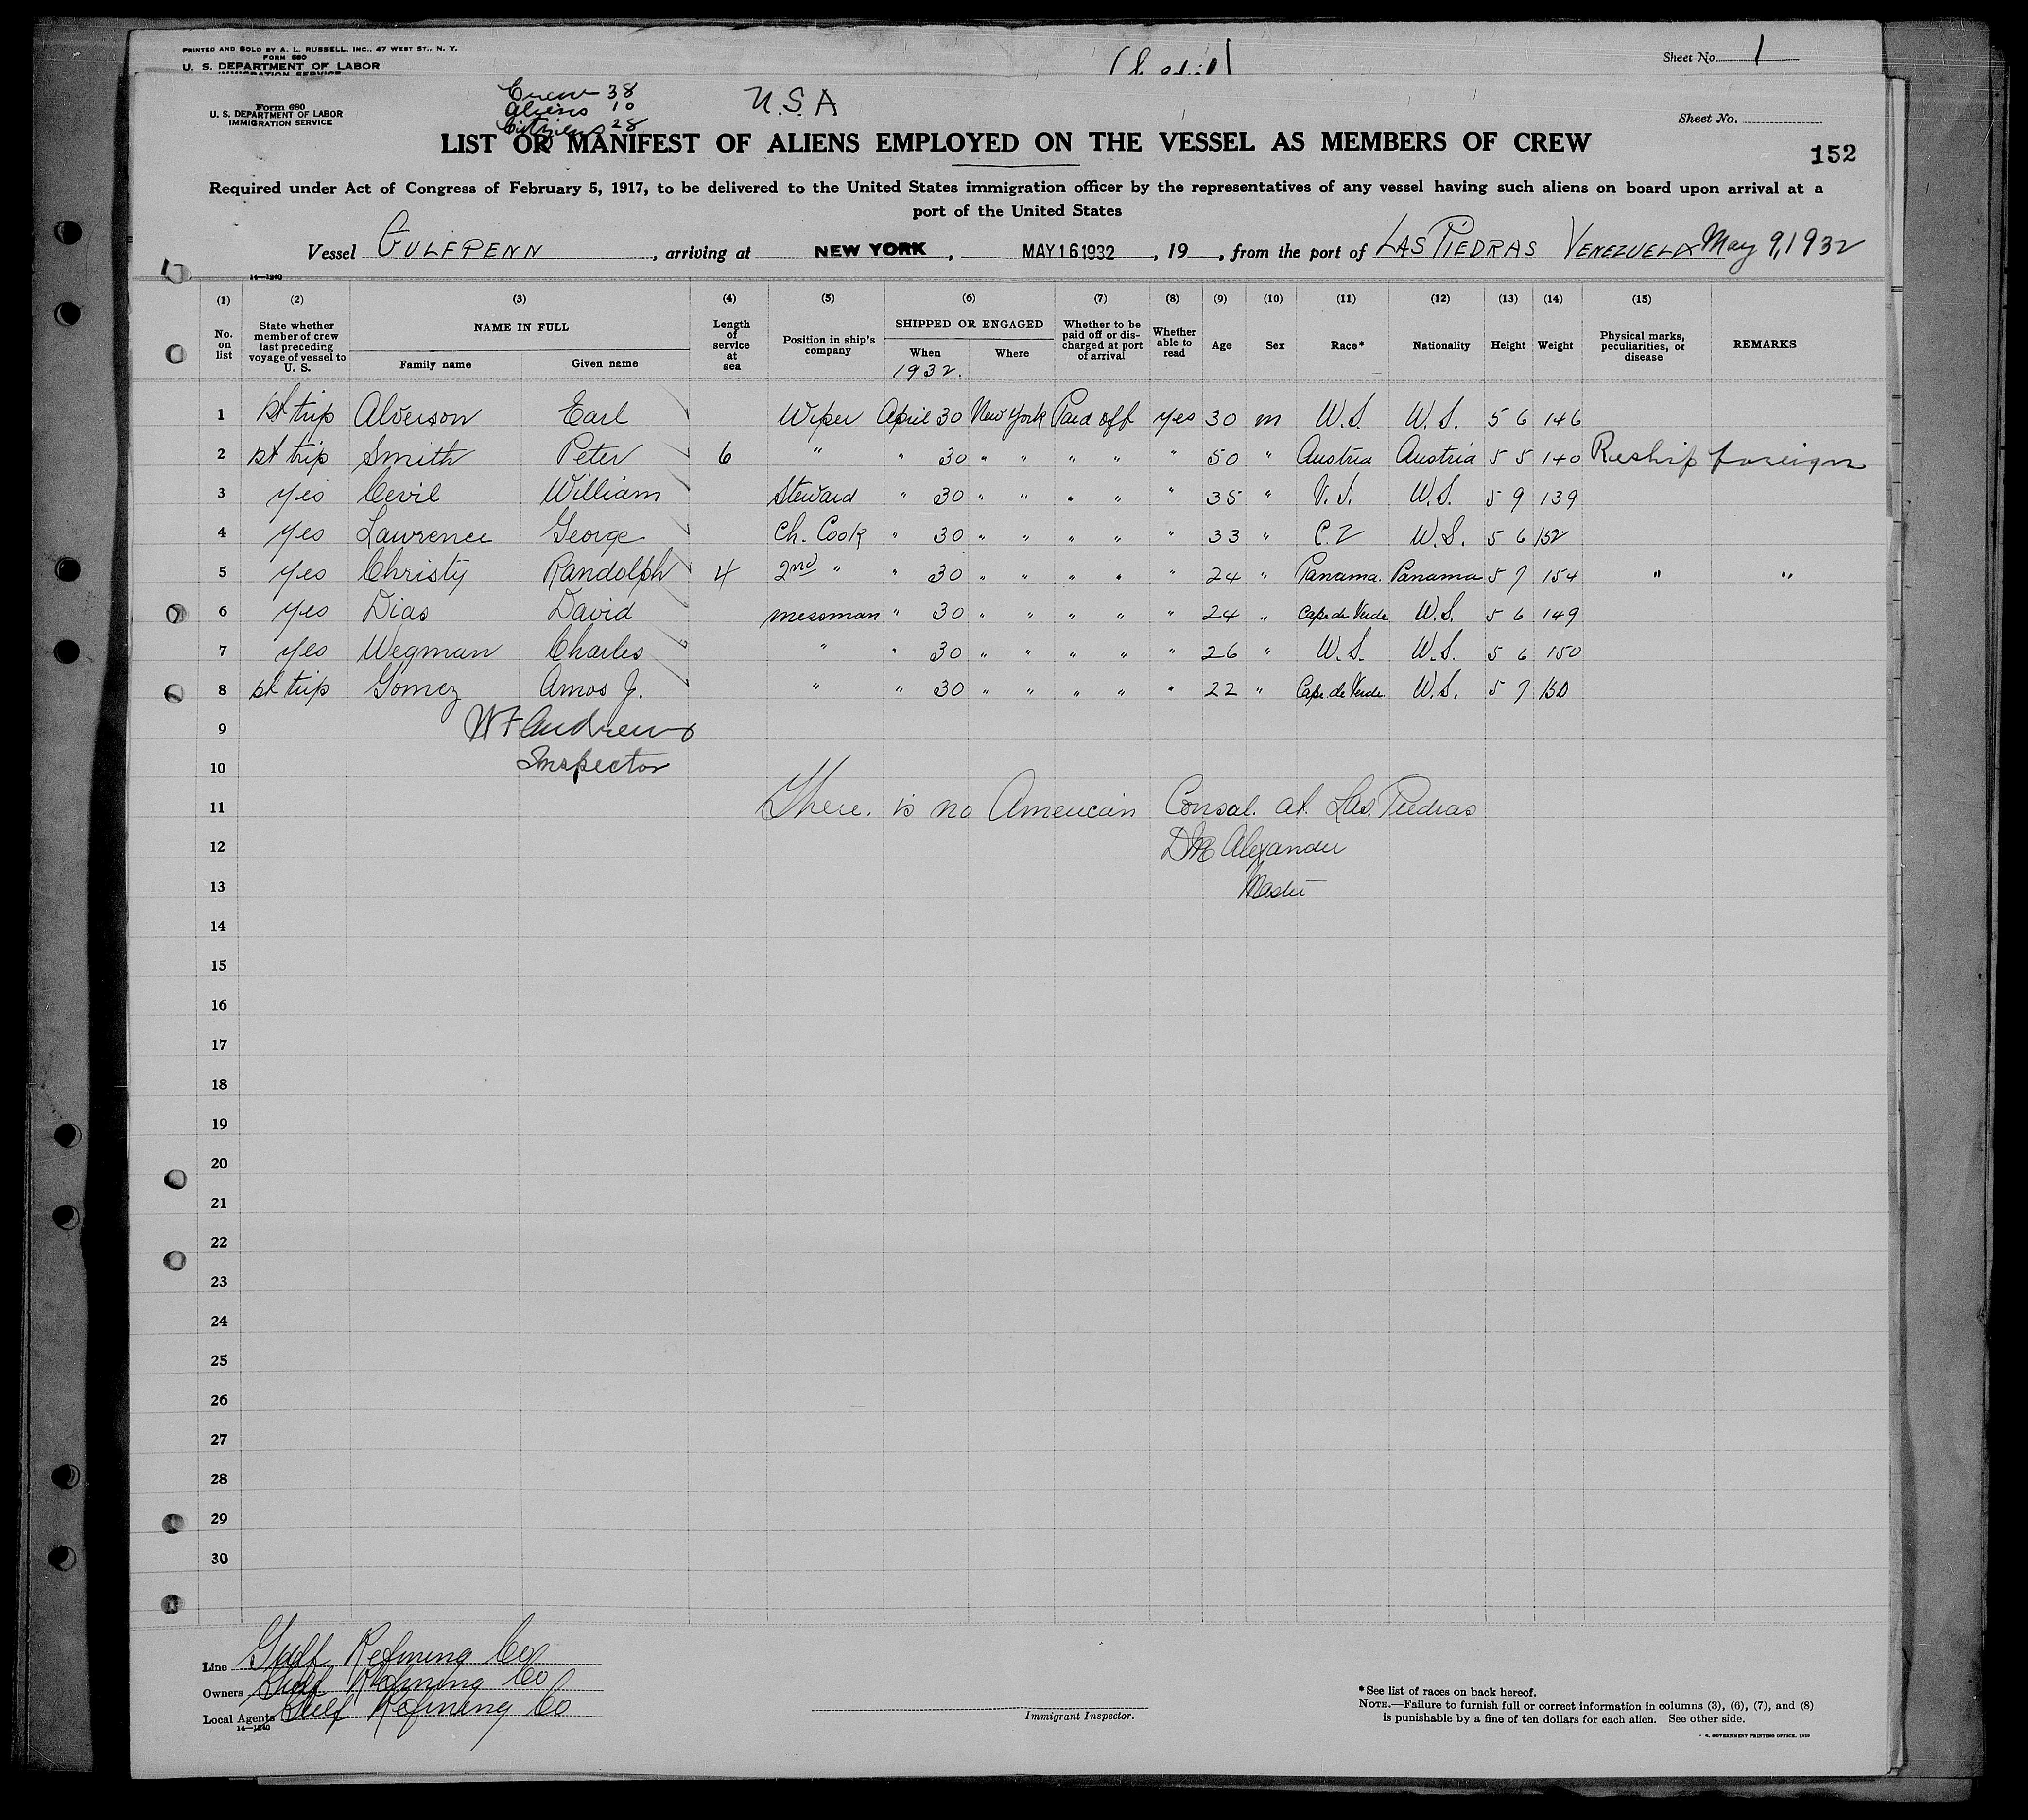 PRINTED AND SOLD BY A. L. RUSSELL, INC., 47 WEST ST., N. Y.
FORM 680
U. S. DEPARTMENT OF LABOR
IMMIGRATION SERVICE
Sheet No. 1
Form 680
U. S. DEPARTMENT OF LABOR
IMMIGRATION SERVICE
Crew 38
Aliens 10
Citizens 28
U.S.A
Sheet No.
LIST OR MANIFEST OF ALIENS EMPLOYED ON THE VESSEL AS MEMBERS OF CREW
152
Required under Act of Congress of February 5, 1917, to be delivered to the United States immigration officer by the representatives of any vessel having such aliens on board upon arrival at a
port of the United States
Vessel GULFPENN, arriving at NEW YORK, MAY 16 1932, 19, from the port of LAS PIEDRAS VENEZUELA May 9, 1932
14—1240
(1) (2) (3) (4) (5) (6) (7) (8) (9) (10) (11) (12) (13) (14) (15)
No. on list
State whether member of crew last preceding voyage of vessel to U. S.
NAME IN FULL
Family name
Given name
Length of service at sea
Position in ship's company
SHIPPED OR ENGAGED
When
1932.
Where
Whether to be paid off or discharged at port of arrival
Whether able to read
Age
Sex
Race*
Nationality
Height
Weight
Physical marks, peculiarities, or disease
REMARKS
1 1st trip Alverson Earl Wiper April 30 New York Paid off Yes 30 m U.S. U.S. 5 6 146
2 1st trip Smith Peter 6 " " 30 " " " " " 50 " Austria Austria 5 5 140 Reship foreign
3 Yes Cevil William Steward " 30 " " " " " 35 " V.I. U.S. 5 9 139
4 Yes Lawrence George Ch. Cook " 30 " " " " " 33 " C.Z U.S. 5 6 152
5 Yes Christy Randolph 4 2nd " " 30 " " " " " 24 " Panama. Panama 5 7 154 " "
6 Yes Dias David messman " 30 " " " " " 24 " Cape de Verde U.S. 5 6 149
7 Yes Wegman Charles " " 30 " " " " " 26 " U.S. U.S. 5 6 150
8 1st trip Gomez Amos J. " " 30 " " " " " 22 " Cape de Verde U.S. 5 7 150
9 W F Andrews
10 Inspector
11 There is no American Consal. at Las. Piedras
12 Alexander
13 Master
14
15
16
17
18
19
20
21
22
23
24
25
26
27
28
29
30
Line Gulf Refining Co
Owners Gulf Refining Co
Local Agents Gulf Refining Co
14—1240
Immigrant Inspector.
*See list of races on back hereof.
NOTE.—Failure to furnish full or correct information in columns (3), (6), (7), and (8)
is punishable by a fine of ten dollars for each alien. See other side.
GOVERNMENT PRINTING OFFICE.